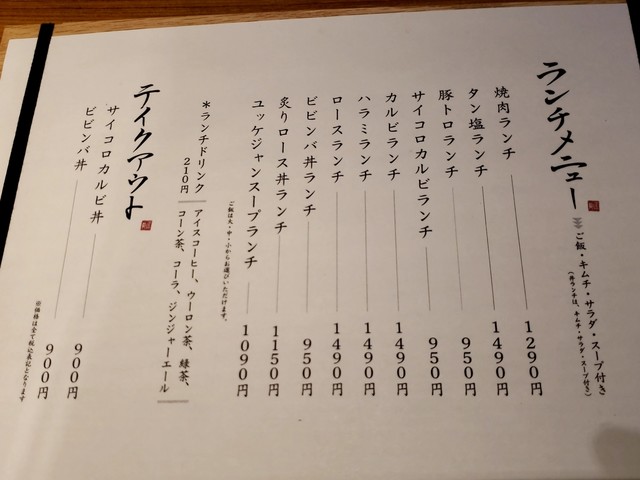 ランチメニュー
ご飯・キムチ・サラダ・スープ付き
(丼ランチは、キムチ・サラダ・スープ付き)
焼肉ランチ 1290円
タン塩ランチ 1490円
豚トロランチ 950円
サイコロカルビランチ 950円
カルビランチ 1490円
ハラミランチ 1490円
ロースランチ 1490円
ビビンバ丼ランチ 950円
炙りロース丼ランチ 1150円
ユッケジャンスープランチ 1090円
ご飯は大・中・小からお選びいただけます。
*ランチドリンク
210円
アイスコーヒー、ウーロン茶、緑茶、
コーン茶、コーラ、ジンジャーエール
テイクアウト
サイコロカルビ丼 900円
ビビンバ丼 900円
※価格は全て税込表記となります